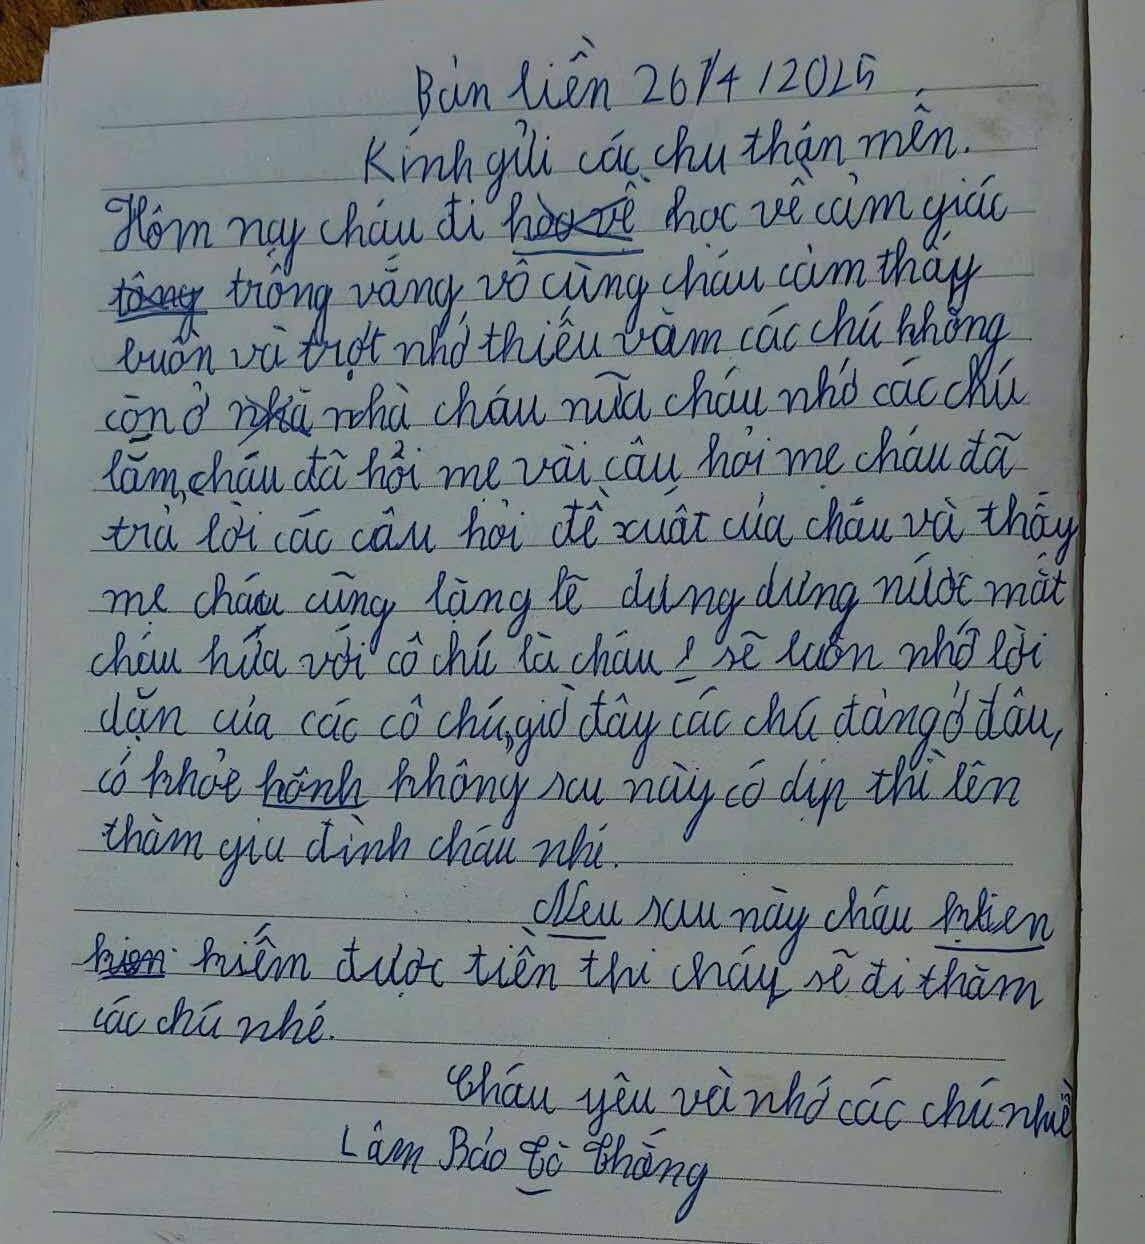 Bản liền 26/4/2025
Kính gửi các chu thán mến.
Hôm nay cháu đi học về học về cảm giác
tông trống vắng vô cùng cháu cảm thấy
buồn và trợt nhớ thiếu vắm các chú không
còn ở nhà nhà cháu nữa cháu nhớ các chú
lắm, cháu đã hỏi mẹ vài câu hỏi mẹ cháu đã
trả lời các câu hỏi đề xuất của cháu và thấy
mẹ cháu cũng lặng lẽ dưng dưng nước mắt
cháu hứa với cô chú là cháu sẽ luôn nhớ lời
dặn của các cô chú, giờ đây các chú đang ở đâu,
có khỏe hônh không sau này có dịp thì lên
thăm gia đình cháu nhé.
Nếu sau này cháu
kiếm được tiền thì cháu sẽ đi thăm
các chú nhé.
Cháu yêu và nhớ các chú nhiề
Lâm Bảo Thắng